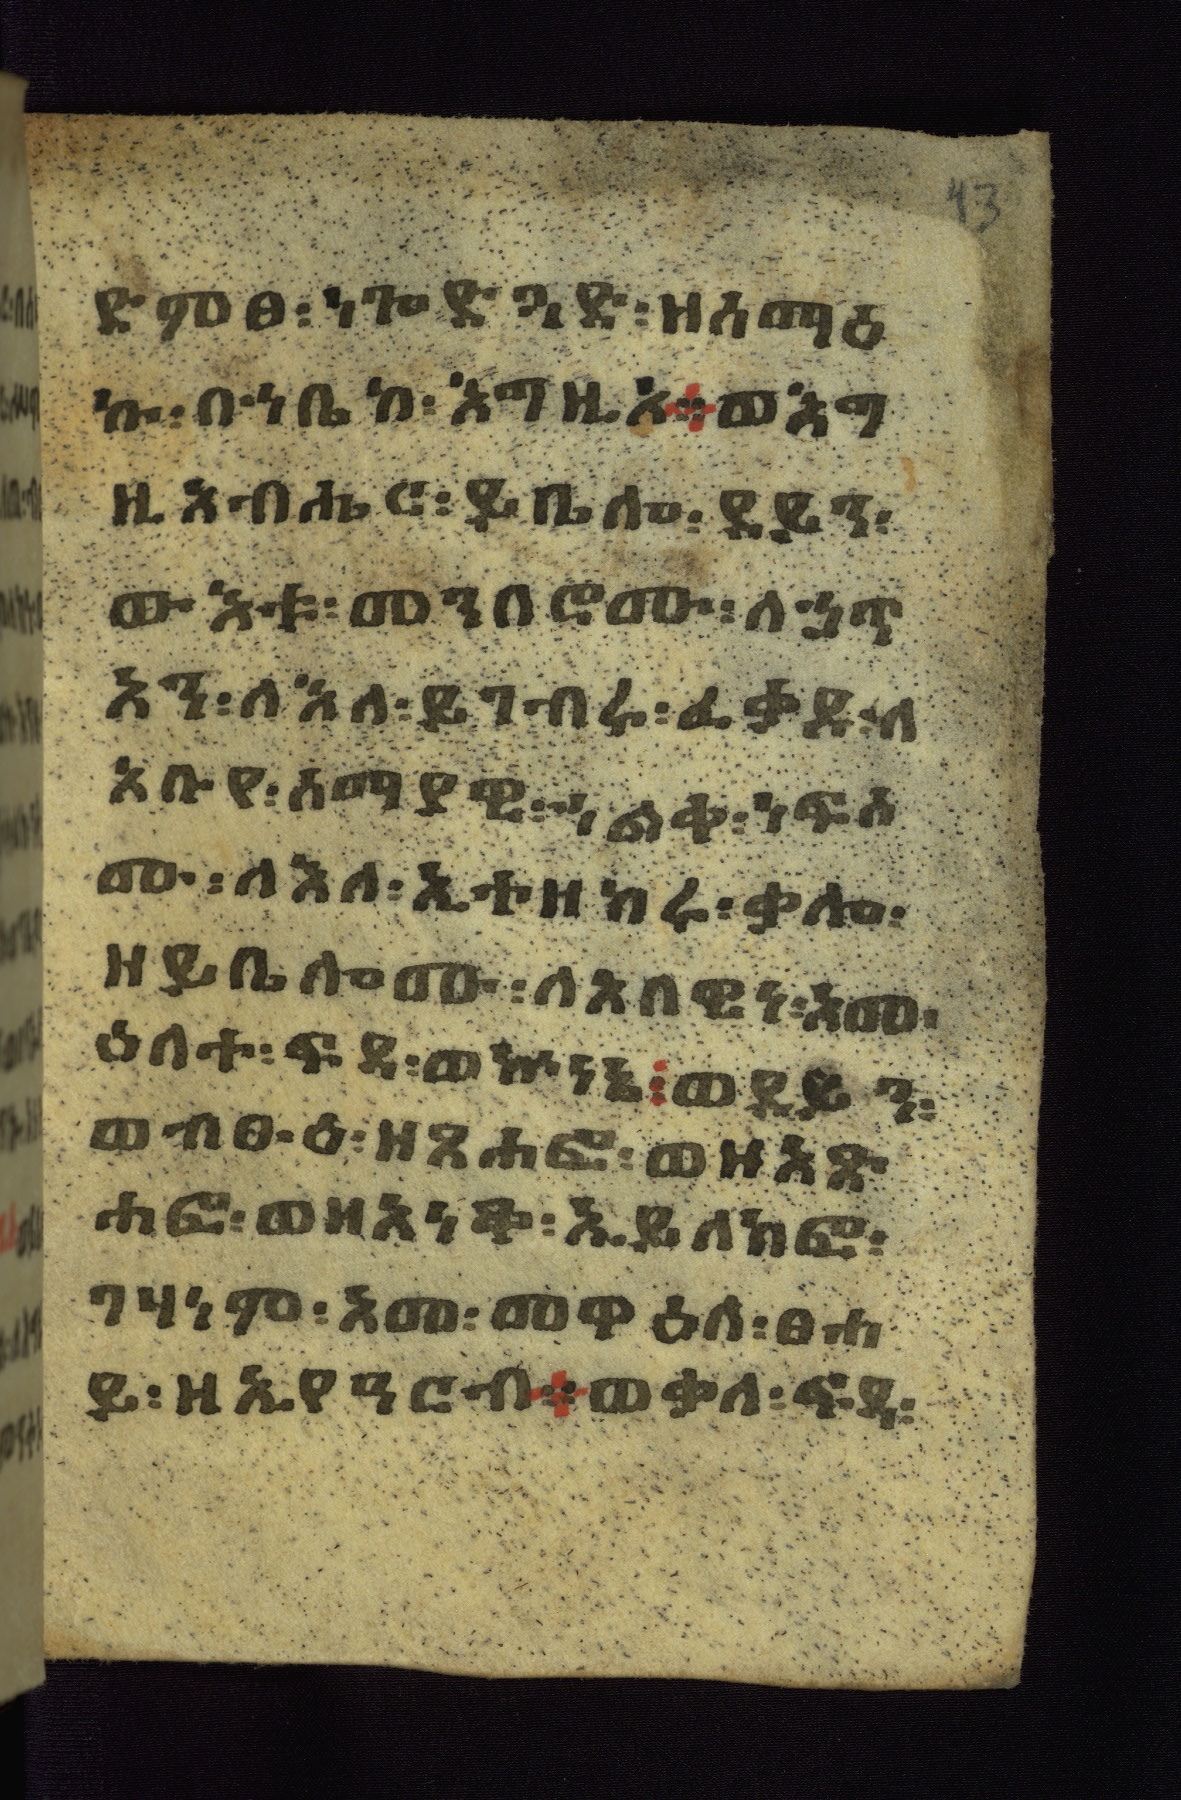 43
ድምፀ፡ ነጐድጓድ፡ ዘሰማዕ
ኩ፡ በኀቤከ፡ እግዚአ፨ ወእግ
ዚአብሔር፡ ይቤሎ፡ ደይን፡
ውእቱ፡ መንበሮሙ፡ ለኃጥ
አን፡ ለእለ፡ ይገብሩ፡ ፈቃደ፡ ለ
አቡየ፡ ሰማያዊ፡ ኀልቀ፡ ነፍሰ
ሙ፡ ለእለ፡ ኢተዘከሩ፡ ቃሎ፡
ዘይቤሎሙ፡ ለእለ ዊነ፡ እመ፡
ዕለተ፡ ፍዳ፡ ወኵነኔ፡ ወደይን፡
ወብፀዕ፡ ዘጸሐፎ፡ ወዘአጽ
ሐፎ፡ ወዘአነቦ፡ ኢይለክፎ፡
ገሃነም፡ እመ፡ መዋዕለ፡ ፀሐ
ይ፡ ዘኢየዓርብ፨ ወቃለ፡ ፍዳ፡